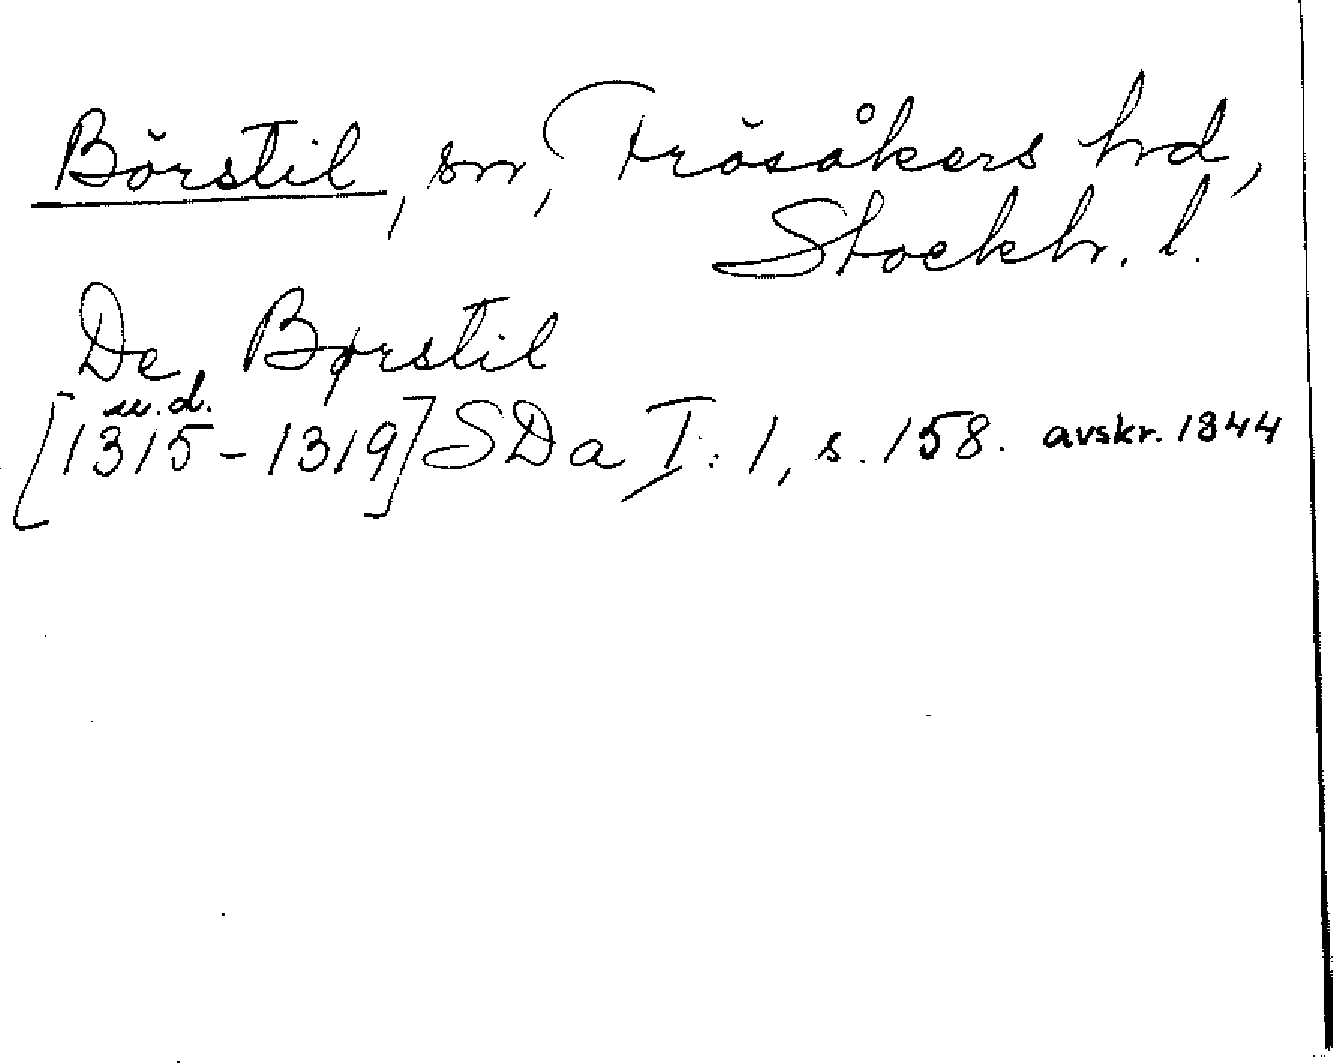 Börstil, sn, Frösåkers hd,
Stockh. l.
De Børstil
u.d.
[1315-1319] SDa I:1, s. 158. avskr. 1344